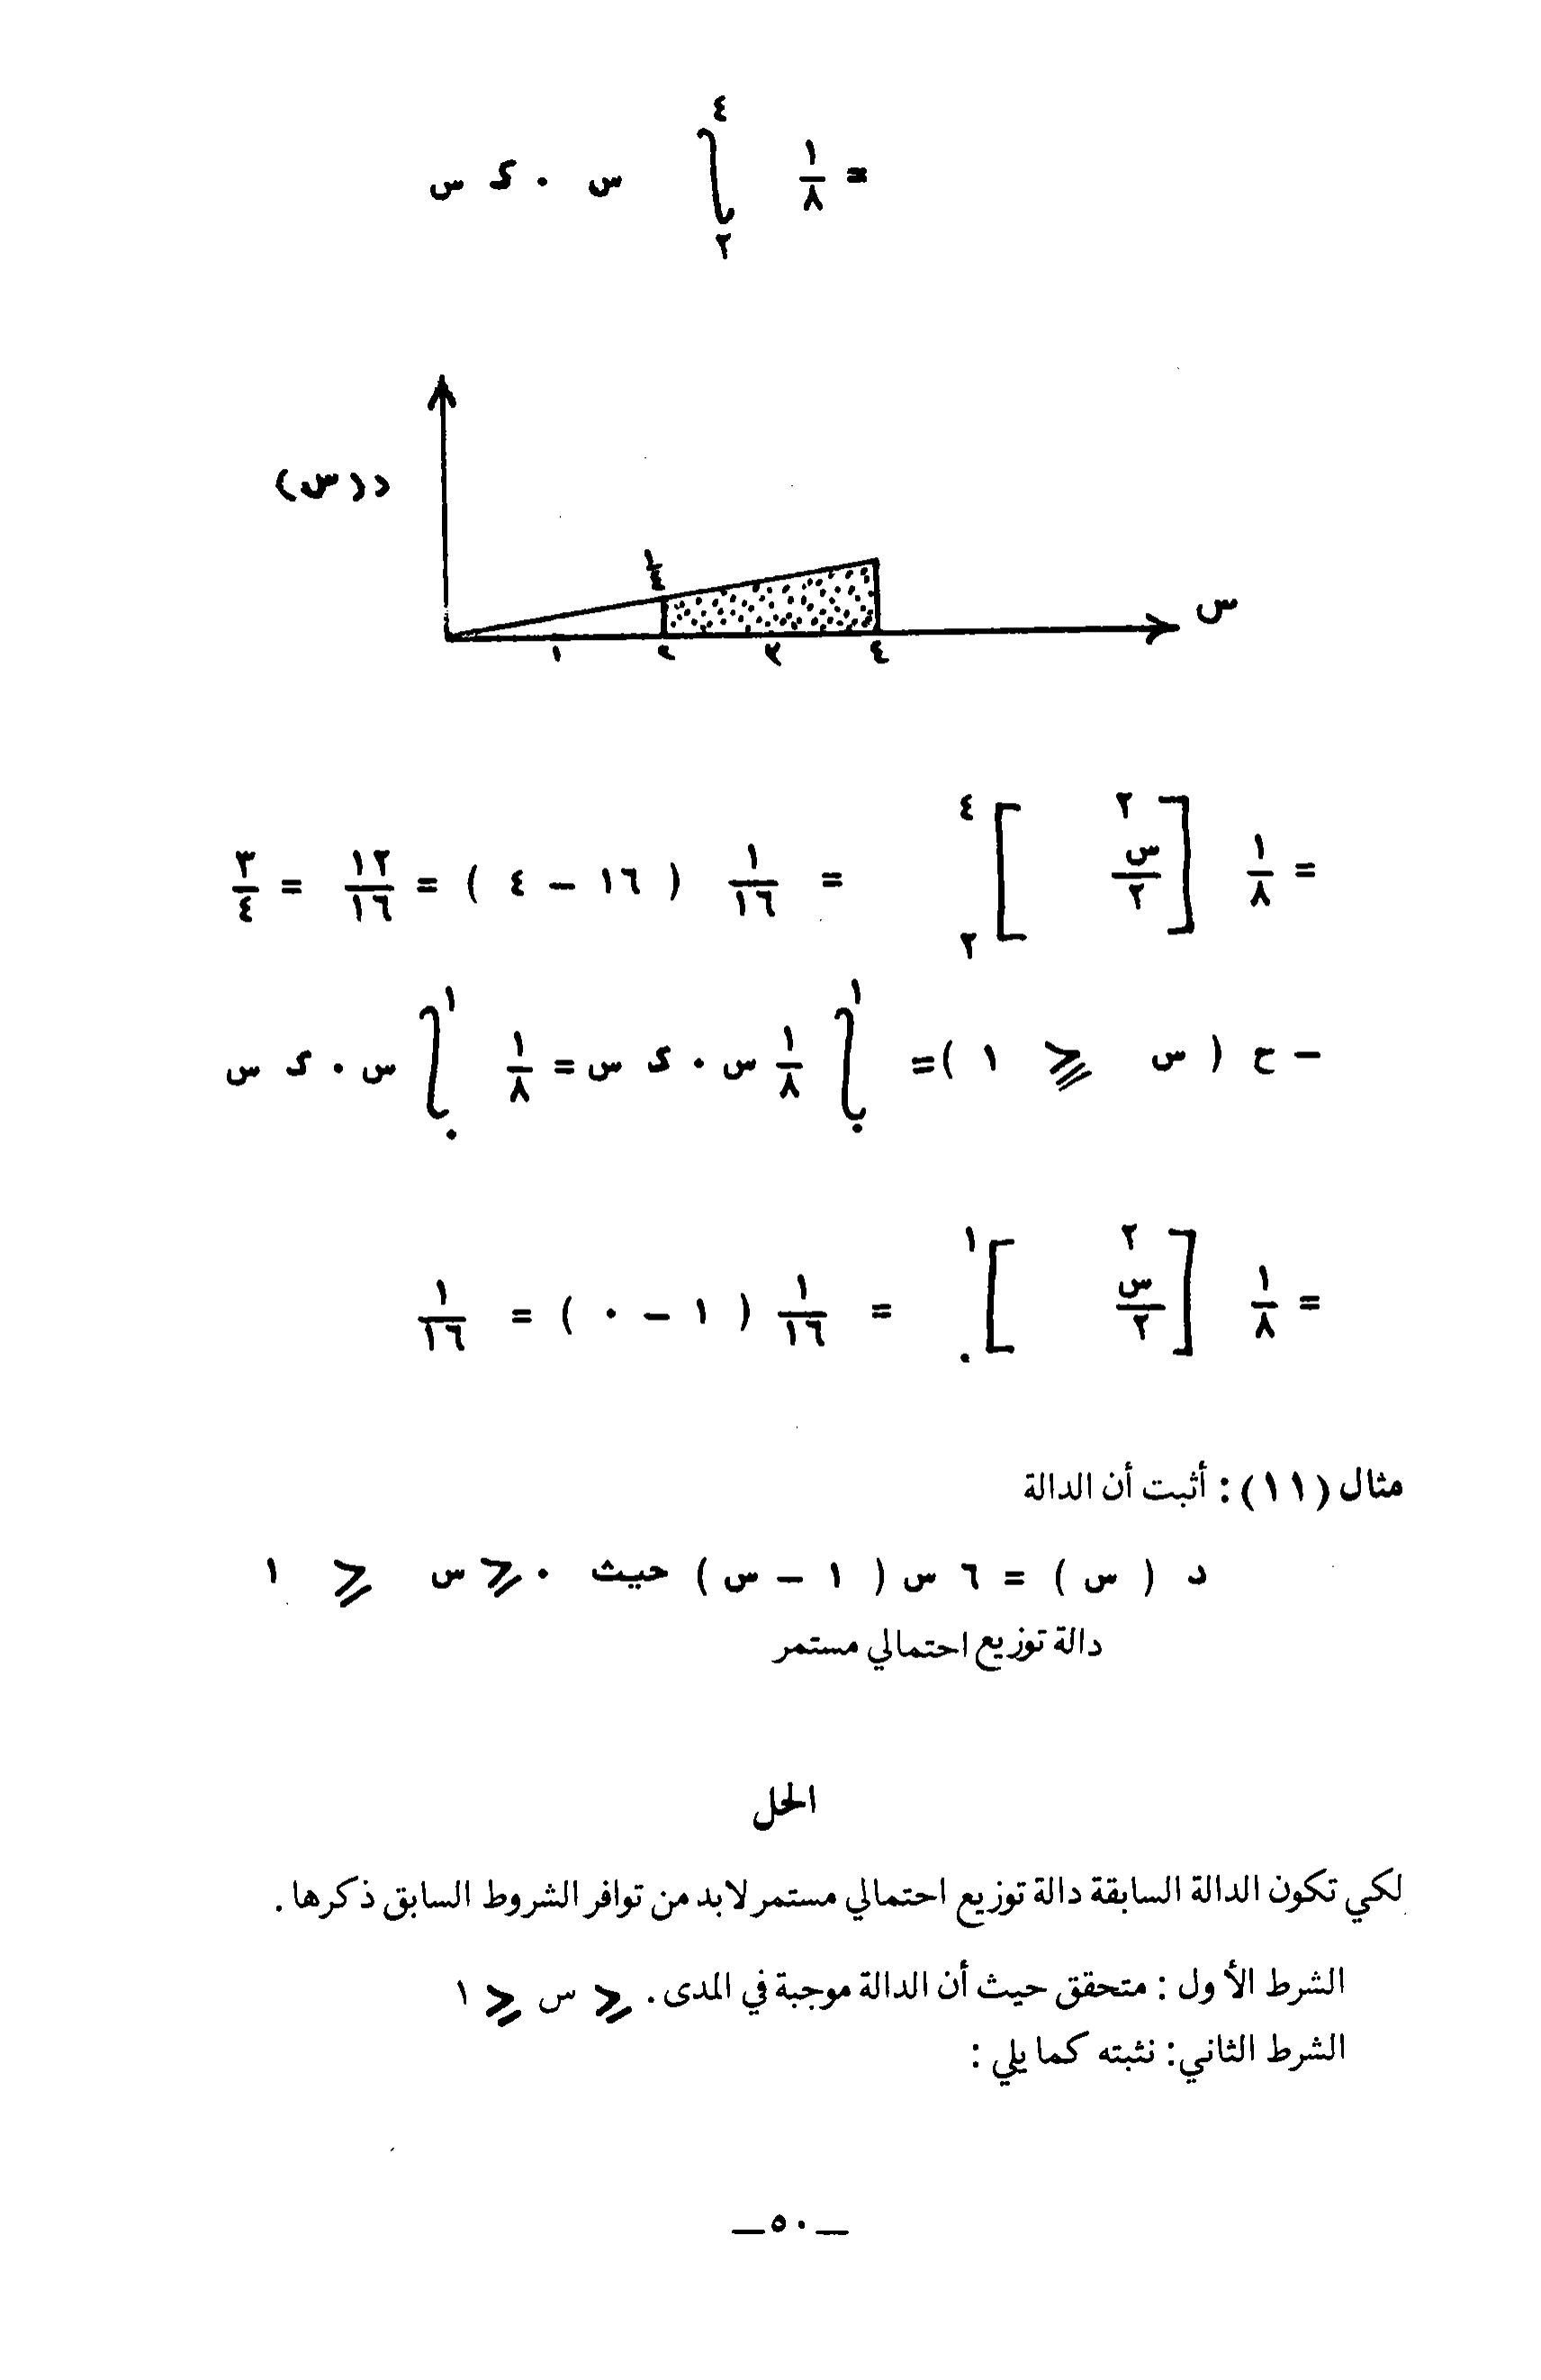 = ١/٨ ∫ من ٢ إلى ٤ س . ء س
د(س)
١/٤
س
١ ٢ ٣ ٤
= ١/٨ [ س²/٢ ] ٤ ٢ = ١/١٦ ( ١٦ – ٤ ) = ١٢/١٦ = ٣/٤
– ح ( س ⩽ ١ ) = ∫ ١ ٠ ١/٨ س . ء س = ١/٨ ∫ ١ ٠ س . ء س
= ١/٨ [ س²/٢ ] ١ ٠ = ١/١٦ ( ١ – ٠ ) = ١/١٦
مثال (١١) : أثبت أن الدالة
د ( س ) = ٦ س ( ١ – س ) حيث ٠ ⩽ س ⩽ ١
دالة توزيع احتمالي مستمر
الحل
لكي تكون الدالة السابقة دالة توزيع احتمالي مستمر لابد من توافر الشروط السابق ذكرها .
الشرط الأول : متحقق حيث أن الدالة موجبة في المدى ٠ ⩽ س ⩽ ١
الشرط الثاني: نثبته كما يلي :
—٥٠—